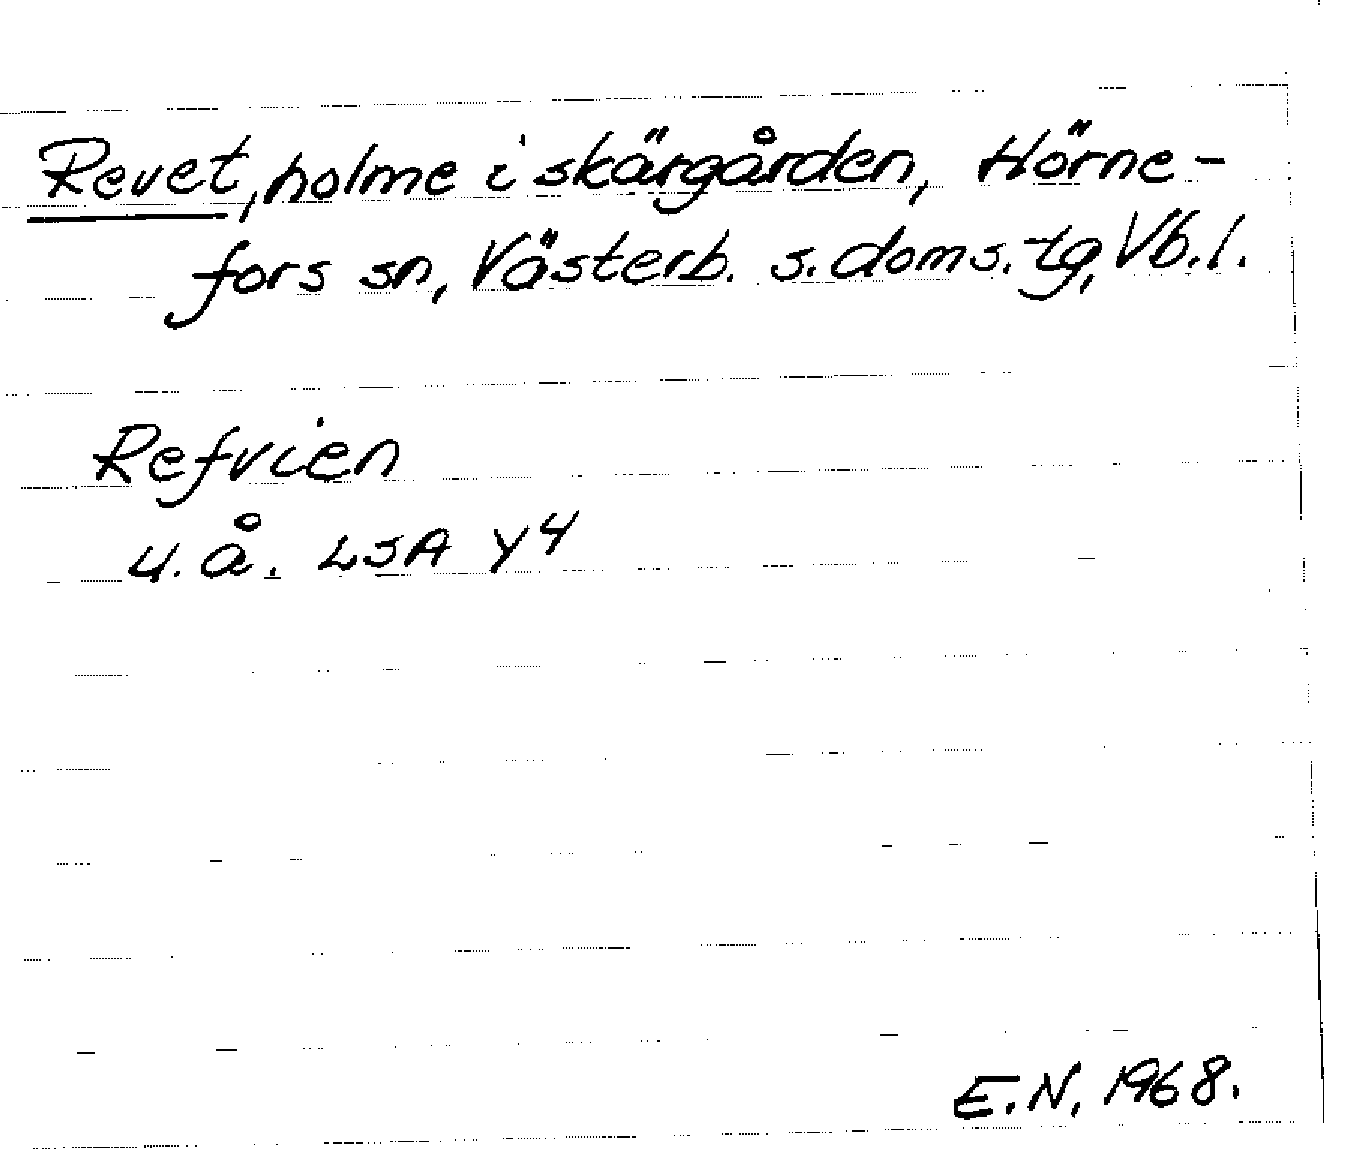 Revet, holme i skärgården, Hörne-
fors sn, Västerb. s. doms. tg, Vb. l.
Refvien
u. å. LSA Y4
E.N. 1968.